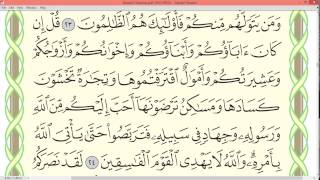 وَمَن يَتَوَلَّهُم مِّنكُمْ فَأُو۟لَٰٓئِكَ هُمُ ٱلظَّٰلِمُونَ ٢٣ قُلْ إِن
كَانَ ءَابَآؤُكُمْ وَأَبْنَآؤُكُمْ وَإِخْوَٰنُكُمْ وَأَزْوَٰجُكُمْ
وَعَشِيرَتُكُمْ وَأَمْوَٰلٌ ٱقْتَرَفْتُمُوهَا وَتِجَٰرَةٌ تَخْشَوْنَ
كَسَادَهَا وَمَسَٰكِنُ تَرْضَوْنَهَآ أَحَبَّ إِلَيْكُم مِّنَ ٱللَّهِ
وَرَسُولِهِۦ وَجِهَادٍ فِى سَبِيلِهِۦ فَتَرَبَّصُوا۟ حَتَّىٰ يَأْتِىَ ٱللَّهُ
بِأَمْرِهِۦ وَٱللَّهُ لَا يَهْدِى ٱلْقَوْمَ ٱلْفَٰسِقِينَ ٢٤ لَقَدْ نَصَرَكُمُ